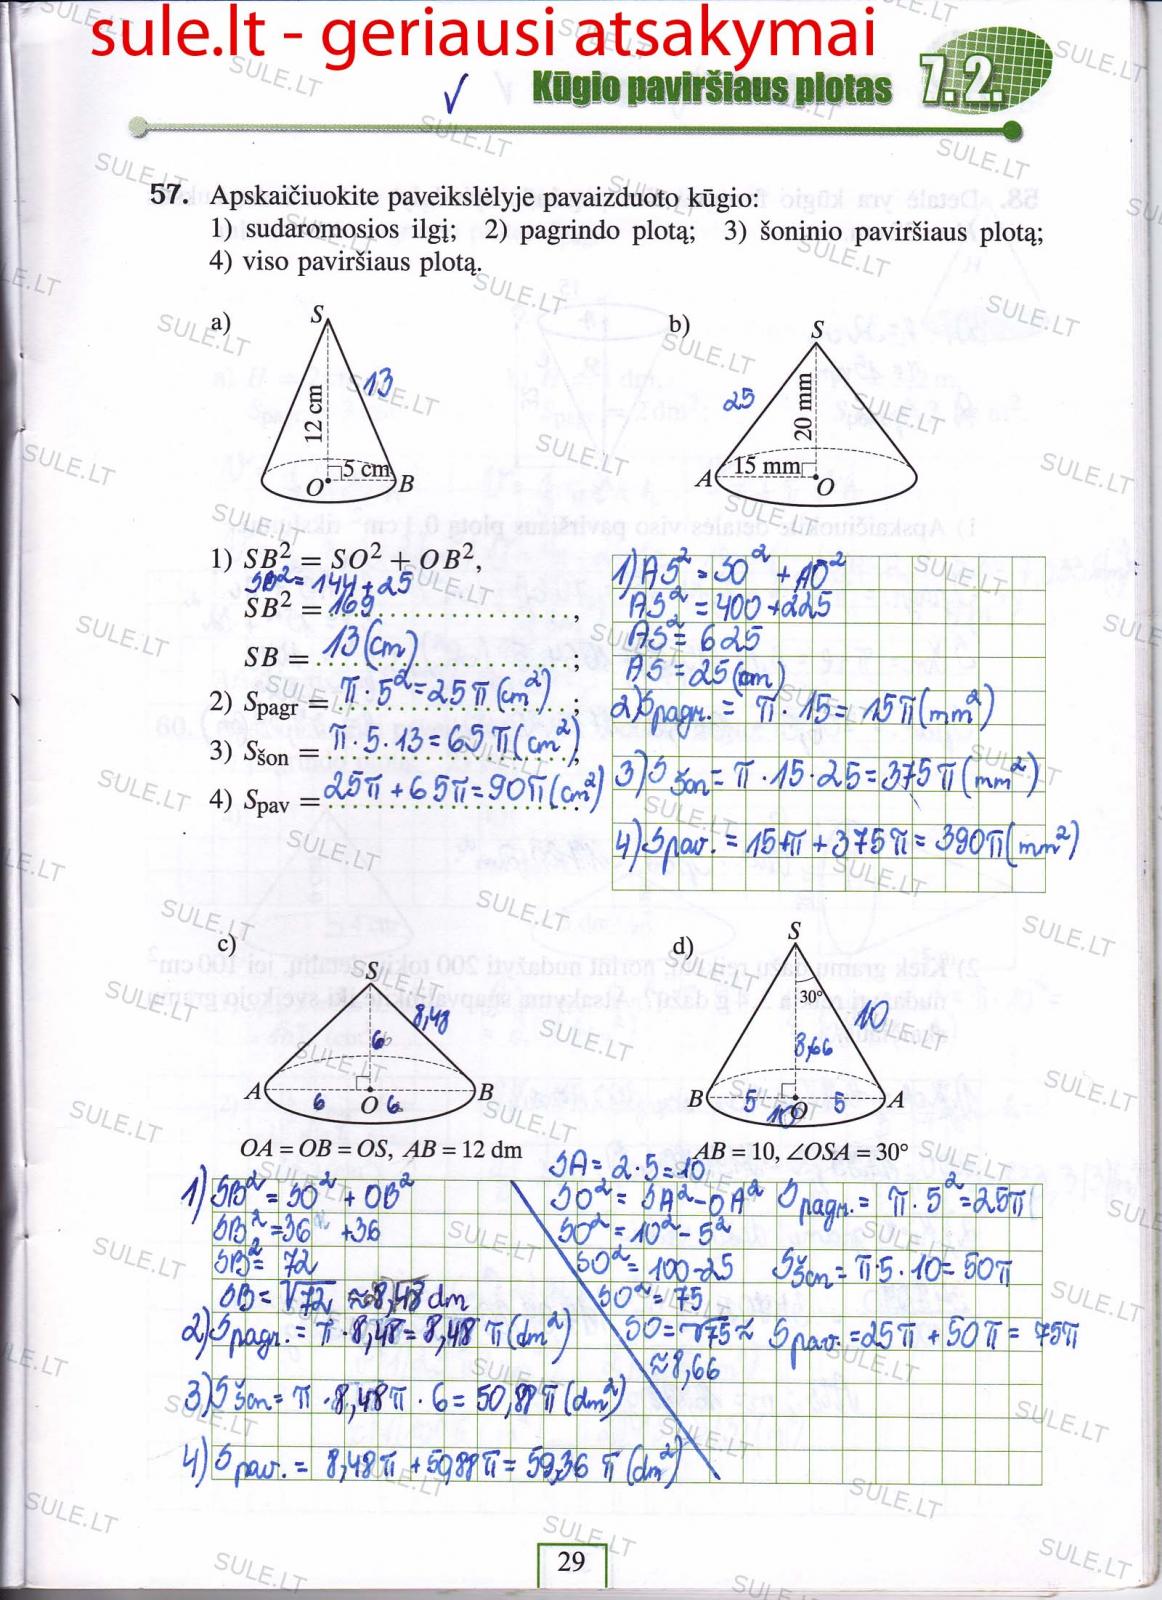 sule.lt - geriausi atsakymai
Kūgio paviršiaus plotas 7.2.
57. Apskaičiuokite paveikslėlyje pavaizduoto kūgio:
1) sudaromosios ilgį; 2) pagrindo plotą; 3) šoninio paviršiaus plotą;
4) viso paviršiaus plotą.
a)
S
13
12 cm
5 cm
O
B
b)
S
25
20 mm
15 mm
A
O
1) SB² = SO² + OB²,
SB² = 144 + 25
SB² = 169,
SB = 13 (cm);
2) Spagr = π · 5² = 25π (cm²);
3) Sšon = π · 5 · 13 = 65π (cm²),
4) Spav = 25π + 65π = 90π (cm²)
1) AS² = SO² + AO²
AS² = 400 + 225
AS² = 625
AS = 25 (mm)
2) Spagr. = π · 15 = 15π (mm²)
3) Sšon = π · 15 · 25 = 375π (mm²)
4) Spav. = 15π + 375π = 390π (mm²)
c)
S
8,48
6
A
6
O
6
B
OA = OB = OS, AB = 12 dm
d)
S
30°
10
8,66
B
5
O
5
A
10
AB = 10, ∠OSA = 30°
1) SB² = SO² + OB²
SB² = 36 + 36
SB² = 72
SB = √72 ≈ 8,48 dm
2) Spagr. = π · 8,48 = 8,48 π (dm²)
3) Sšon = π · 8,48π · 6 = 50,88π (dm²)
4) Spav. = 8,48π + 50,88π = 59,36 π (dm²)
SA = 2 · 5 = 10
SO² = SA² - OA²
SO² = 10² - 5²
SO² = 100 - 25
SO² = 75
SO = √75 ≈
≈ 8,66
Spagr. = π · 5² = 25π
Sšon = π · 5 · 10 = 50π
Spav. = 25π + 50π = 75π
29
SULE.LT